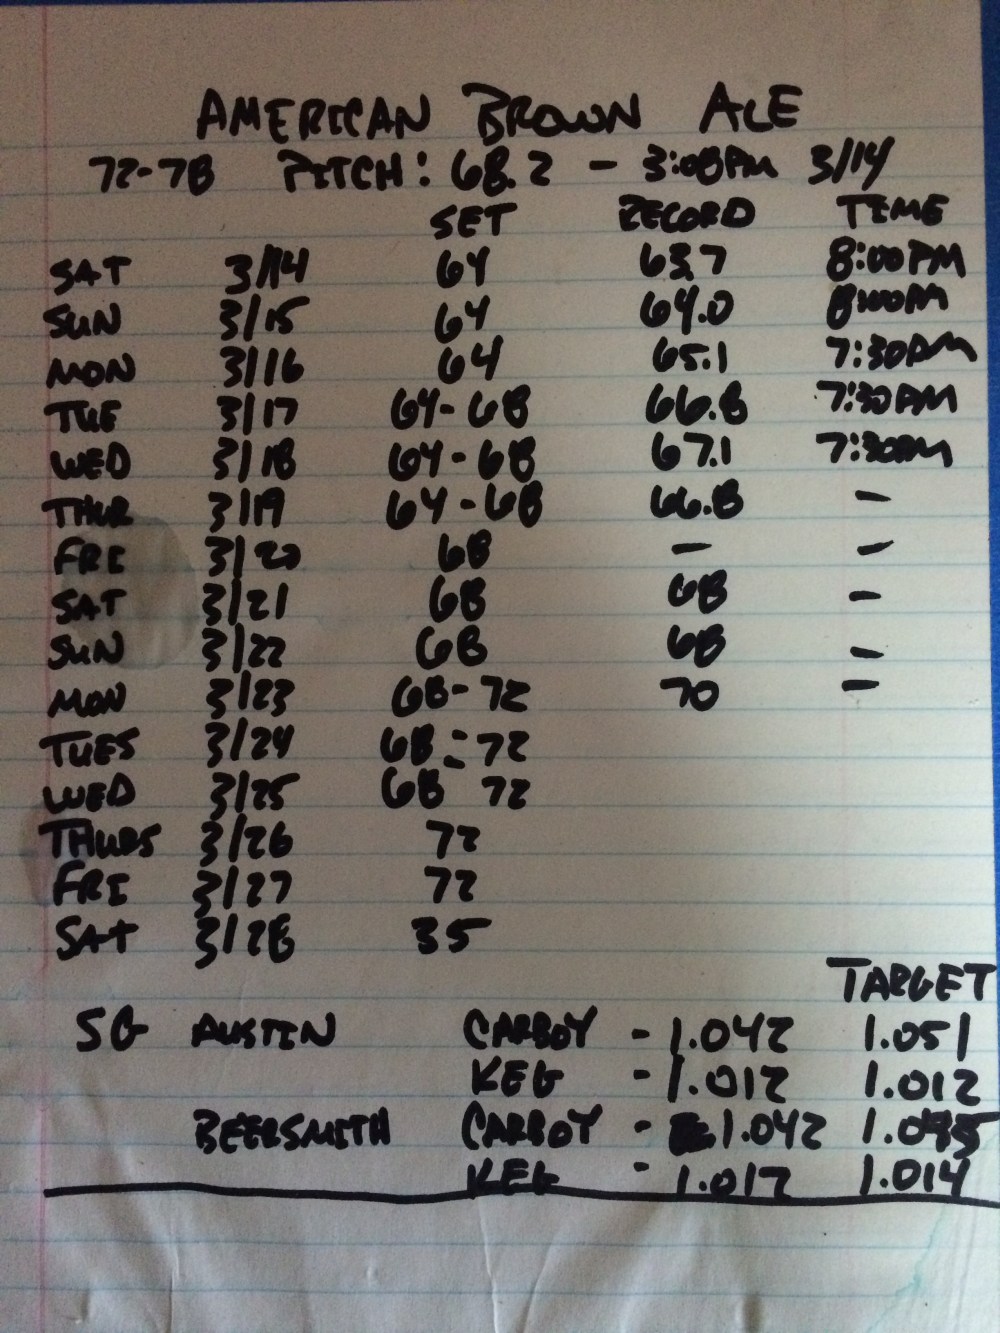 AMERICAN BROWN ALE
72-78 PITCH: 68.2 - 3:08PM 3/14
SET RECORD TIME
SAT 3/14 64 63.7 8:00PM
SUN 3/15 64 64.0 8:00PM
MON 3/16 64 65.1 7:30PM
TUE 3/17 64-68 66.8 7:30PM
WED 3/18 64-68 67.1 7:30PM
THUR 3/19 64-68 66.8 -
FRI 3/20 68 - -
SAT 3/21 68 68 -
SUN 3/22 68 68 -
MON 3/23 68-72 70 -
TUES 3/24 68-72
WED 3/25 68 72
THURS 3/26 72
FRI 3/27 72
SAT 3/28 35
TARGET
SG AUSTIN CARBOY - 1.042 1.051
KEG - 1.012 1.012
BEERSMITH CARBOY - 1.042
KEG - 1.012 1.014